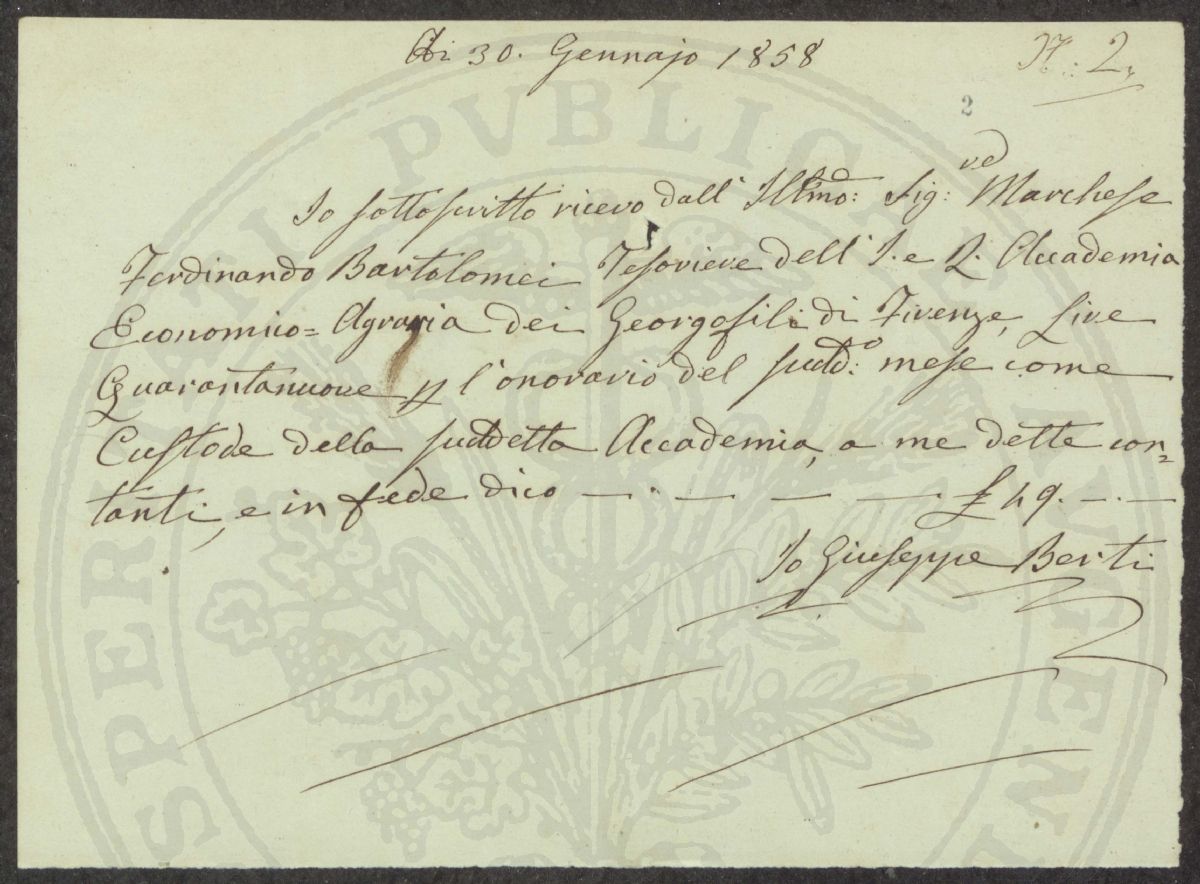 Adi 30. Gennajo 1858
N.: 2,,
2
Io sottoscritto ricevo dall' Illmo: Sig:re Marchese
Ferdinando Bartolomei Tesoriere dell' I. e R. Accademia
Economico=Agraria dei Georgofili di Firenze, Lire
Quarantanuove p l'onorario del sudd:o mese come
Custode della suddetta Accademia, a me dette con=
tanti, e in fede dico — . — — — . £ 49. — . —
Io Giuseppe Berti
PROSPERITATI PUBLICAE AUGENDAE